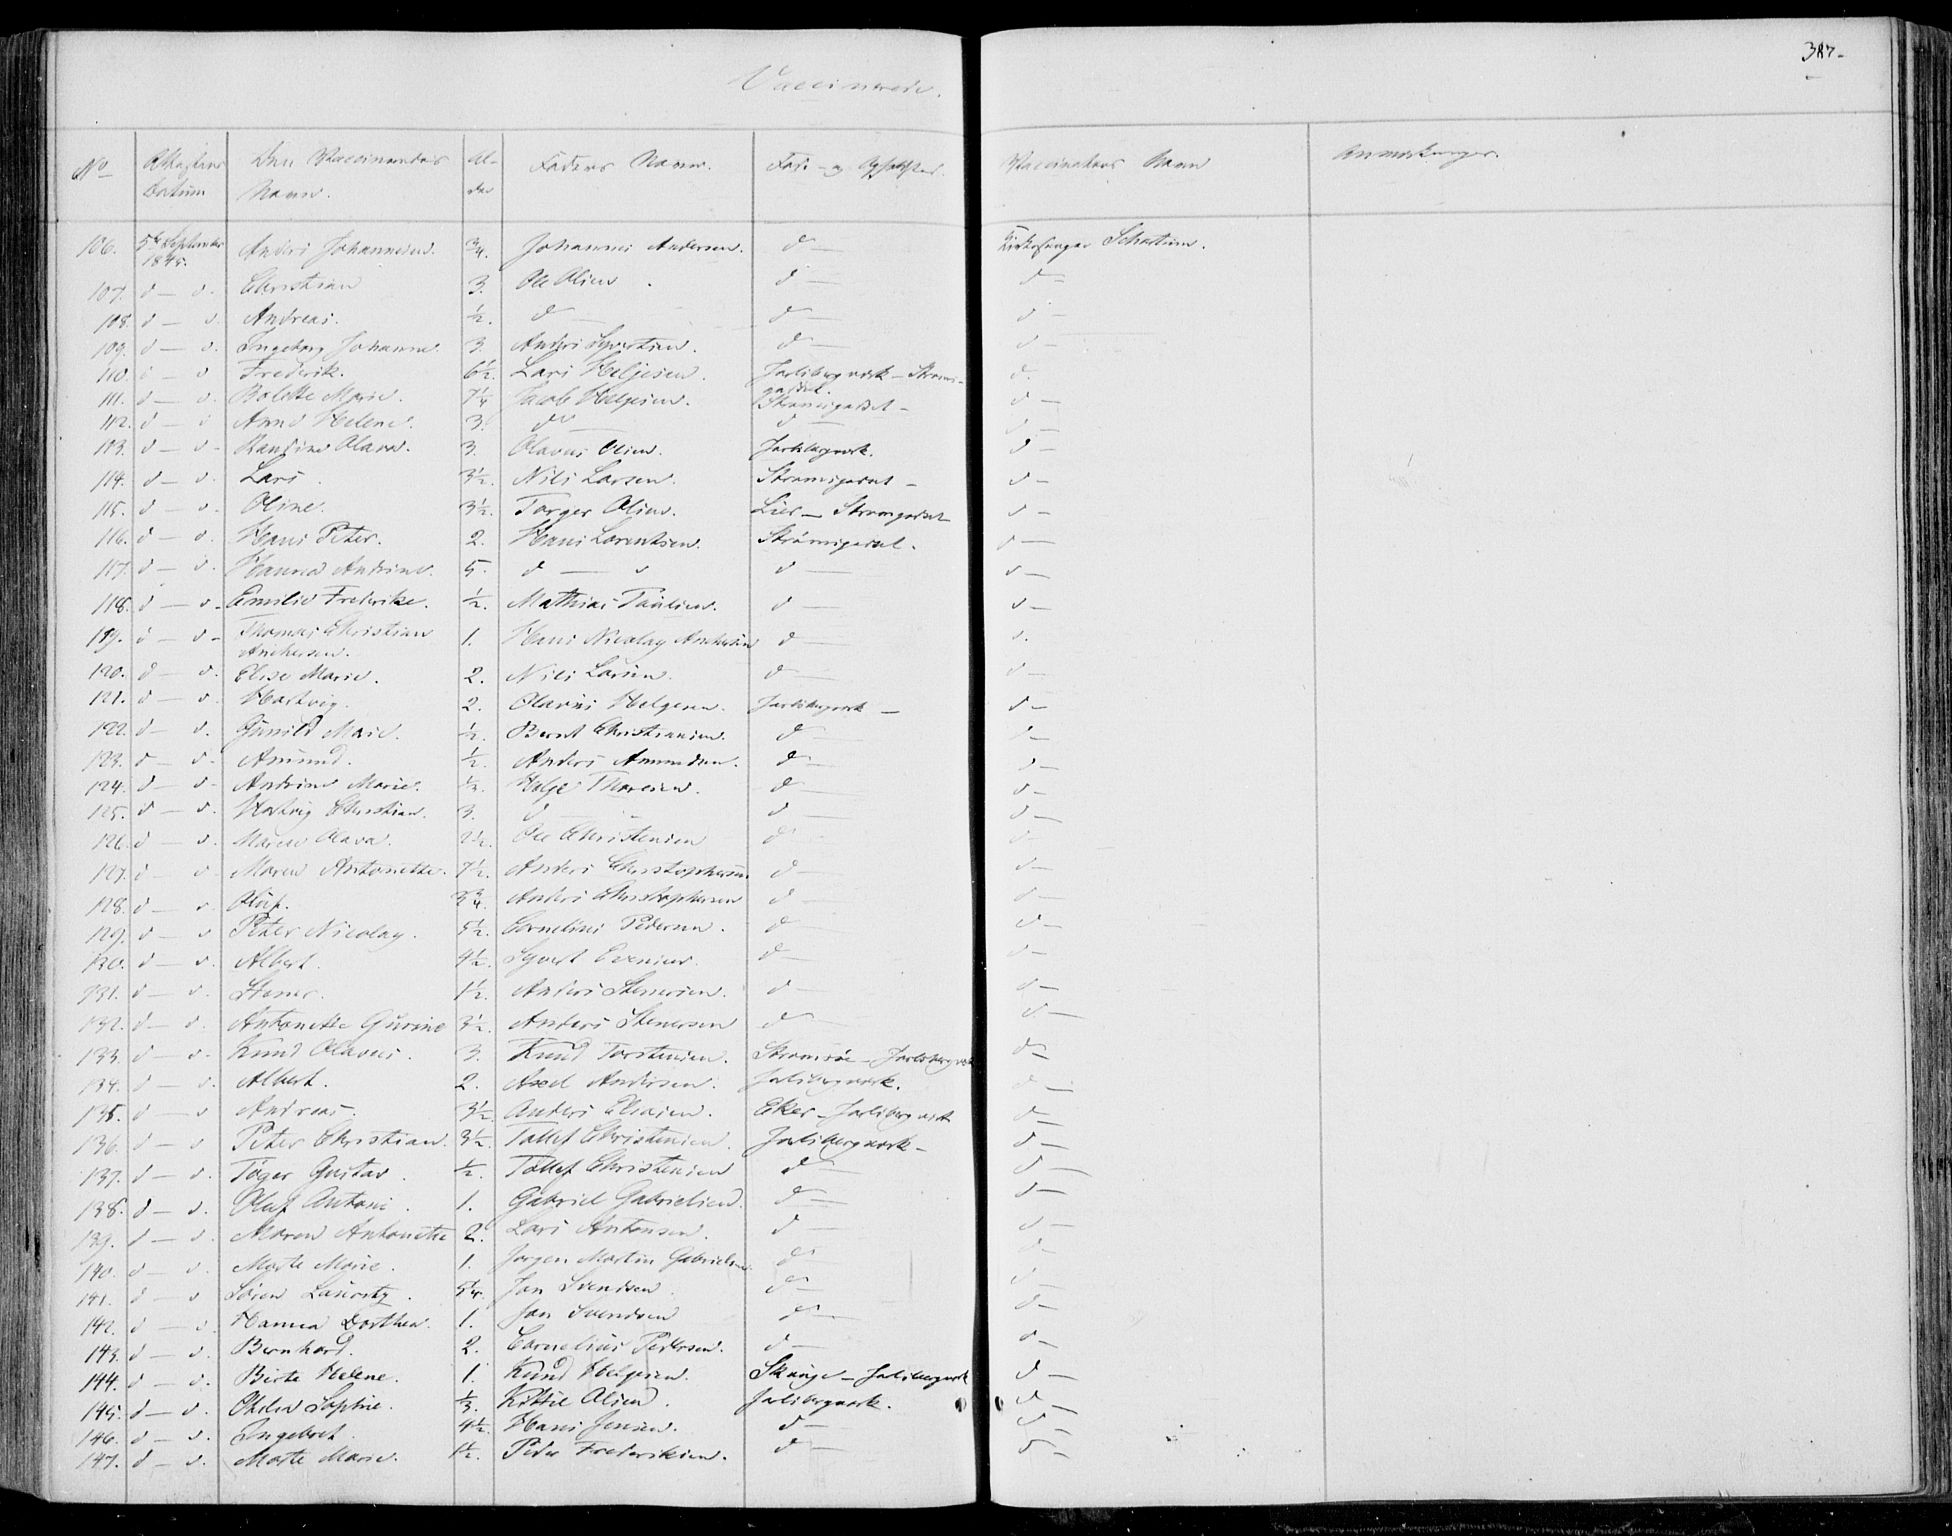 387-
Vaccinerede.
No Attestens Datum Den Vaccineredes Navn. Alder Faders Navn. Føde- og Opholdsted. Vaccinateurs Navn Anmærkninger.
106. 5te September 1845. Anders Johannesen. 3/4. Johannes Andersen. d — Kirkesanger Schottum.
107. d — d. Christian 3. Ole Olsen. d — d —
108. d — d. Andreas. 1/2. d — d — d —
109. d — d. Ingeborg Johanne. 3. Anders Syvertsen. d — d —
110. d — d Frederik. 6 1/2. Lars Helgesen. Jarlsbergværk — Strømsgodset. d.
111. d — d. Bolette Marie. 7 1/4 Jacob Helgesen. Strømsgodset — d —
112. d — d Anne Helene. 3. do — d — d —
113. d — d — Randine Olava. 3. Olavus Olsen. Jarlsbergværk. d —
114. d — d. Lars. 3 1/2. Nils Larsen. Strømsgodset — d —
115. d — d. Oline. 3 1/2. Torger Olsen. Lier — Strømsgodset d —
116. d — d. Hans Peter. 2. Hans Lorentsen. Strømsgodset. d —
117. d — d. Hanna Andrine. 5. d — d d — d —
118. d — d — Emilie Frederike. 1/2. Mathias Paulsen. d — d —
119. d — d — Thomas Christian Anchersen. 1. Hans Nicolay Anchersen d — d.
120. d — d. Elise Marie. 2. Nils Larsen. d — d —
121. d — d. Hartvig. 2. Olavus Helgesen. Jarlsbergværk — d —
122. d — d. Gunild Marie. 1/2. Bernt Christiansen. d — d —
123. d — d. Amund. 1/2. Anders Amundsen. d — d —
124. d — d — Andrine Marie. 1/2. Helge Thoresen. d — d —
125. d — d. Hartvig Christian. 3. d — d — d —
126. d — d. Maren Olava. 2 1/2. Ole Christensen d — d —
127. d — d. Maren Antonette. 7 1/2. Anders Christophersen d — d —
128. d — d. Oluf. 3 3/4. Anders Christophersen d — d —
129. d — d Peter Nicolay. 5 1/2. Cornelius Pedersen. d — d —
130. d — d. Albert. 4 1/2. Syvert Evensen. d — d —
131. d — d. Stener. 1 1/2. Anders Stenersen. d — d —
132. d — d. Antonette Gurine 3 1/2. Anders Stenersen d — d —
133. d — d. Knud Olavus. 3. Knud Torstensen. Strømsøe — Jarlsbergværk d —
134. d — d. Albert. 2. Axel Andersen. Jarlsbergværk. d —
135. d — d Andreas. 3 1/2. Anders Eliasen. Eker — Jarlsbergværk d —
136. d — d Peter Christian. 3 1/2. Tollef Christensen. Jarlsbergværk — d —
137. d — d. Tøger Gustav. 1/2. Tollef Christensen d — d —
138. d — d. Oluf Antoni. 1. Gabriel Gabrielsen. d — d —
139. d — d. Maren Antonette 2. Lars Antonsen. d — d —
140. d — d. Marte Marie. 1. Jørgen Martin Gabrielsen. d — d —
141. d — d Søren Lauritz. 5/4. Jon Svendsen. d — d —
142. d — d. Hanna Dorthea. 1. Jon Svendsen d — d —
143. d — d. Bernhard. 2. Cornelius Pedersen. d — d —
144. d — d. Birte Helene. 1. Knud Helgesen. Skauge — Jarlsbergværk d —
145. d — d. Sophie. 1/3. Kittil Olsen. Jarlsbergværk. d —
146. d — d. Ingebret. 4 1/2. Hans Jensen. d — d —
147. d — d. Marte Marie. 1 1/2. Peder Frederiksen. d — d —